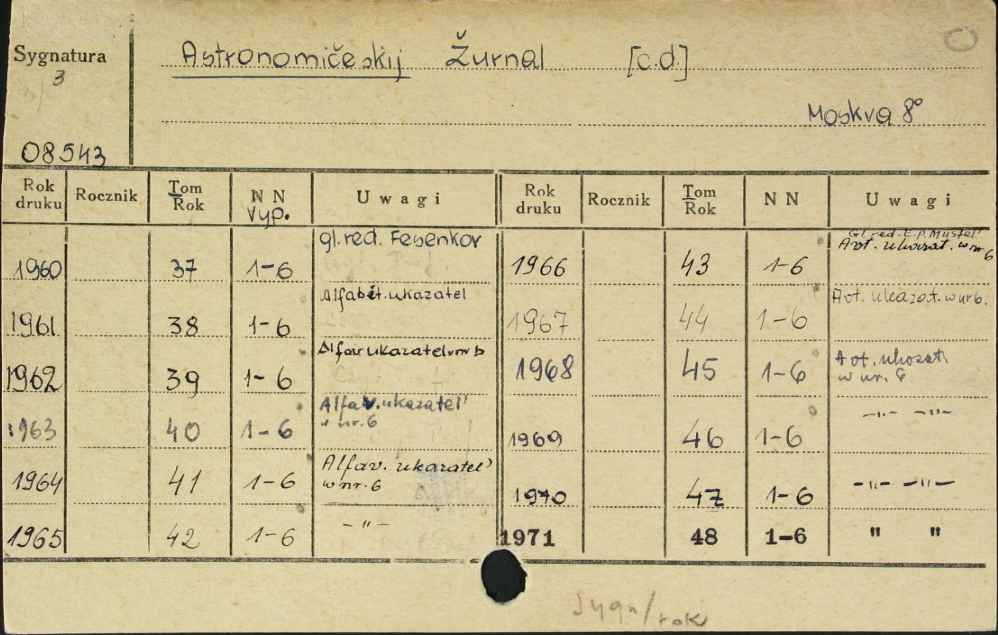 Sygnatura
3
08543
Astronomičeskij Žurnal [c.d.]
Moskva 8°
Rok druku Rocznik Tom Rok NN Vyp. Uwagi Rok druku Rocznik Tom Rok NN Uwagi
1960 37 1-6 gl. red. Fesenkov
1961 38 1-6 Alfabet. ukazatel
1962 39 1-6 Alfav. ukazatel w nr 6
1963 40 1-6 Alfav. ukazatel' w nr. 6
1964 41 1-6 Alfav. ukazatel' w nr. 6
1965 42 1-6 – " –
1966 43 1-6 Gl. red. E.P. Mustel' Avt. ukazat. w nr 6
1967 44 1-6 Avt. ukazat. w nr 6.
1968 45 1-6 Avt. ukazat. w nr. 6
1969 46 1-6 –"– –"–
1970 47 1-6 –"– –"–
1971 48 1-6 " "
Sygn/rok